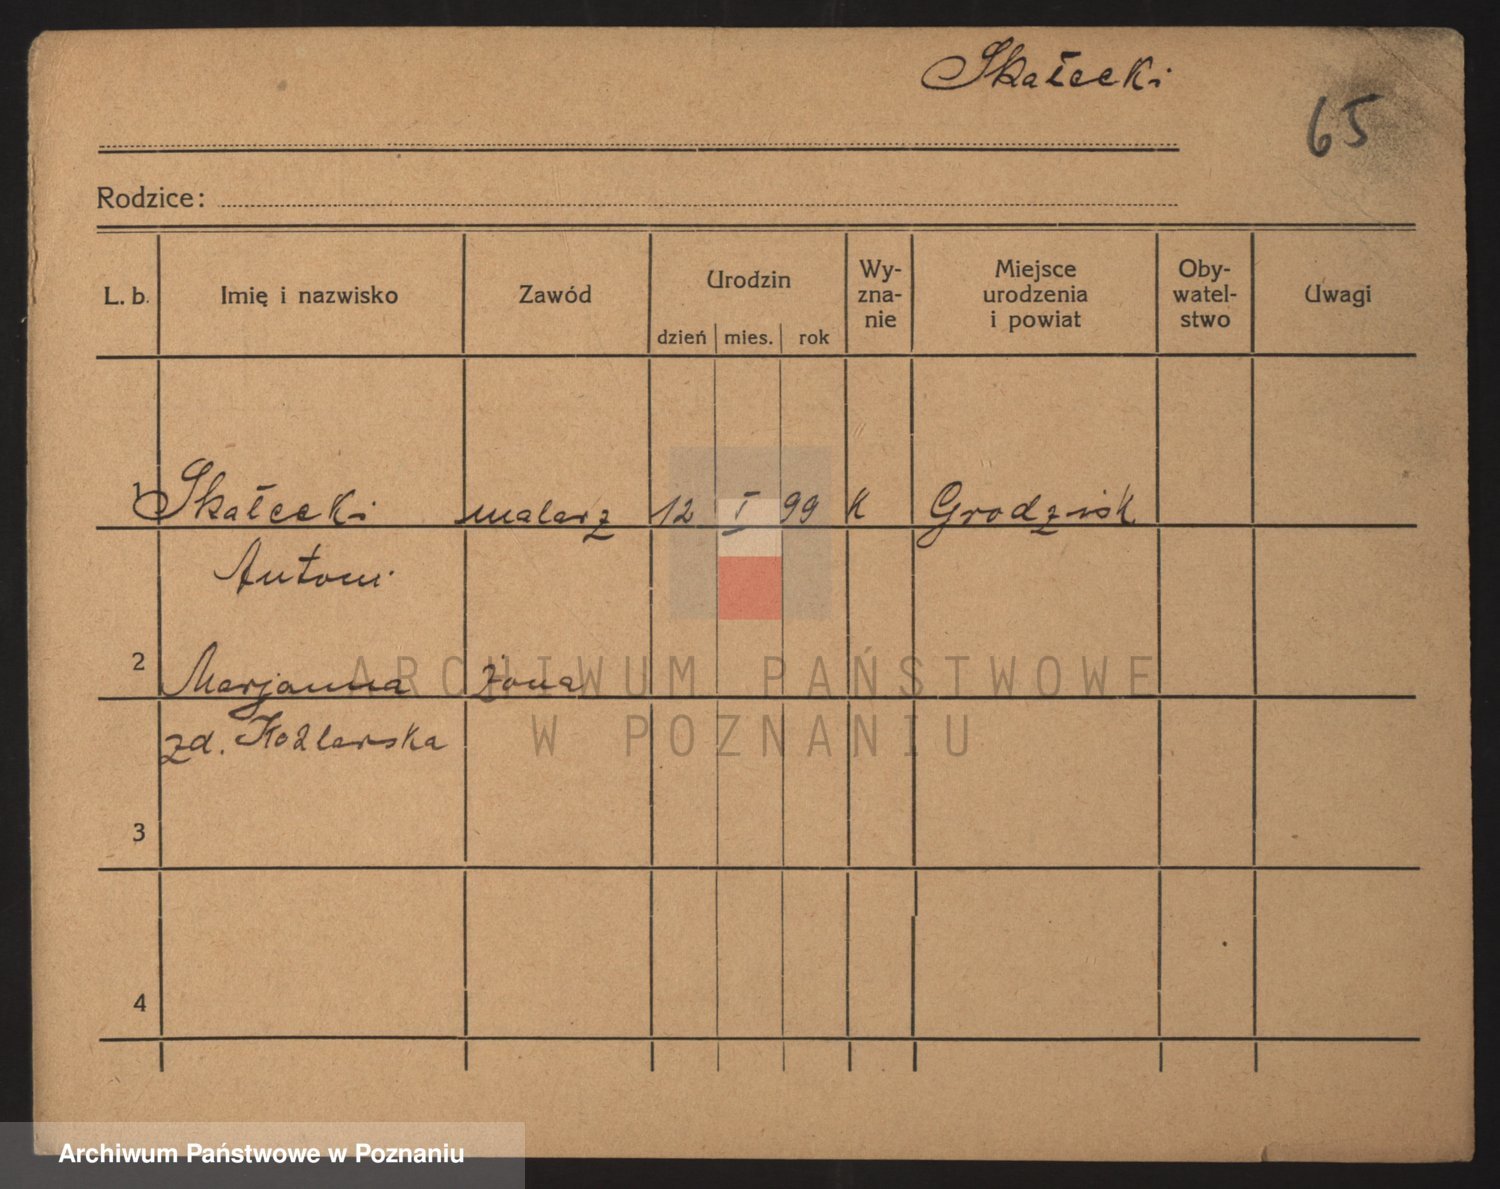 Skałecki
65
Rodzice:
L. b. Imię i nazwisko Zawód Urodzin dzień mies. rok Wy-zna-nie Miejsce urodzenia i powiat Oby-watel-stwo Uwagi
1 Skałecki malarz 12 I 99 K Grodzisk
Antoni
2 Marjanna żona
zd. Kozlarska
3
4
ARCHIWUM PAŃSTWOWE
W POZNANIU
Archiwum Państwowe w Poznaniu